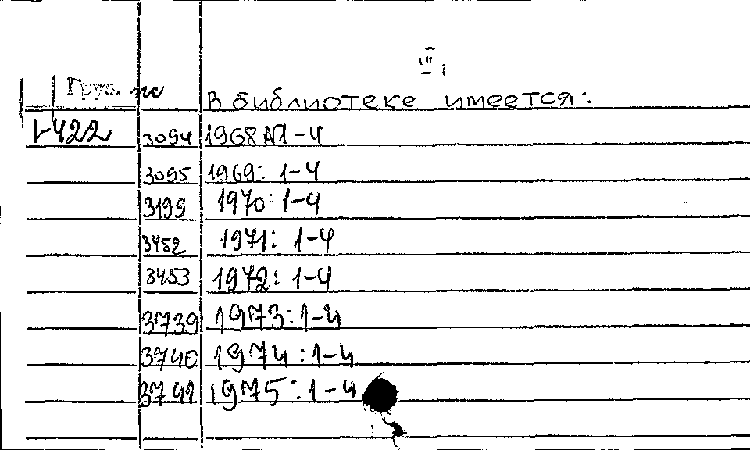 III
Груз. пс В библиотеке имеется:
1-422 3094 1968 №1-4
3095 1969: 1-4
3199 1970: 1-4
3452 1971: 1-4
3453 1972: 1-4
3739 1973: 1-4
3740 1974: 1-4
3741 1975: 1-4